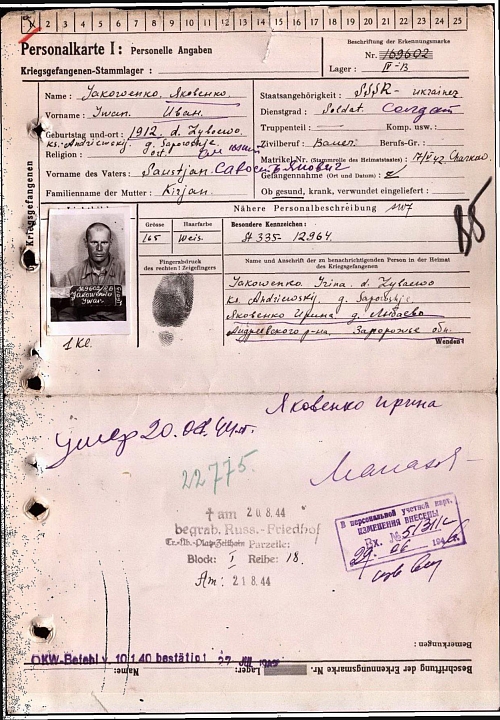 1 2 3 4 5 6 7 8 9 10 11 12 13 14 15 16 17 18 19 20 21 22 23 24 25
Personalkarte I: Personelle Angaben
Beschriftung der Erkennungsmarke
Nr. 169602
Kriegsgefangenen-Stammlager:
Lager: IV-B
Kriegsgefangenen
Name: Jakowenko, Яковенко.
Staatsangehörigkeit: SSSR - ukrainer
Vorname: Iwan Иван.
Dienstgrad: Soldat. Солдат
Geburtstag und -ort: 1912. d. Zybaewo
Truppenteil: Komp. usw.:
ks. Andriewskij, g. Saporoshje
Zivilberuf: Bauer Berufs-Gr.:
Religion:
Matrikel Nr. (Stammrolle des Heimatstaates): 17/V 42. Charkow.
Vorname des Vaters: Saustjan
Gefangennahme (Ort und Datum):
Familienname der Mutter: Kirjan
Ob gesund, krank, verwundet eingeliefert:
Nähere Personalbeschreibung
Grösse Haarfarbe Besondere Kennzeichen:
165 Weis. A 335-12964.
Fingerabdruck
des rechten! Zeigefingers
Name und Anschrift der zu benachrichtigenden Person in der Heimat
des Kriegsgefangenen
Jakowenko Irina. d. Zybaewo
ks. Andriewskij, g. Saporoshje
Яковенко Ирина д.
Андреевского р-на Запорожье обл.
Wenden!
169602
Jakowenko
Iwan
1 Kl.
Яковенко Ирина
умер 20.08.44г.
22775.
† am 20.8.44
begrab. Russ.-Friedhof
Tr.-Üb.-Platz Zeithain Parzelle:
Block: I Reihe: 18.
Am: 21.8.44
В персональной учетной карт.
ИЗМЕНЕНИЯ ВНЕСЕНЫ
Вх. №
29 06 194
Bemerkungen:
OKW-Befehl v. 10.1.40 bestätigt
Beschriftung der Erkennungsmarke Nr.
Lager:
Name: